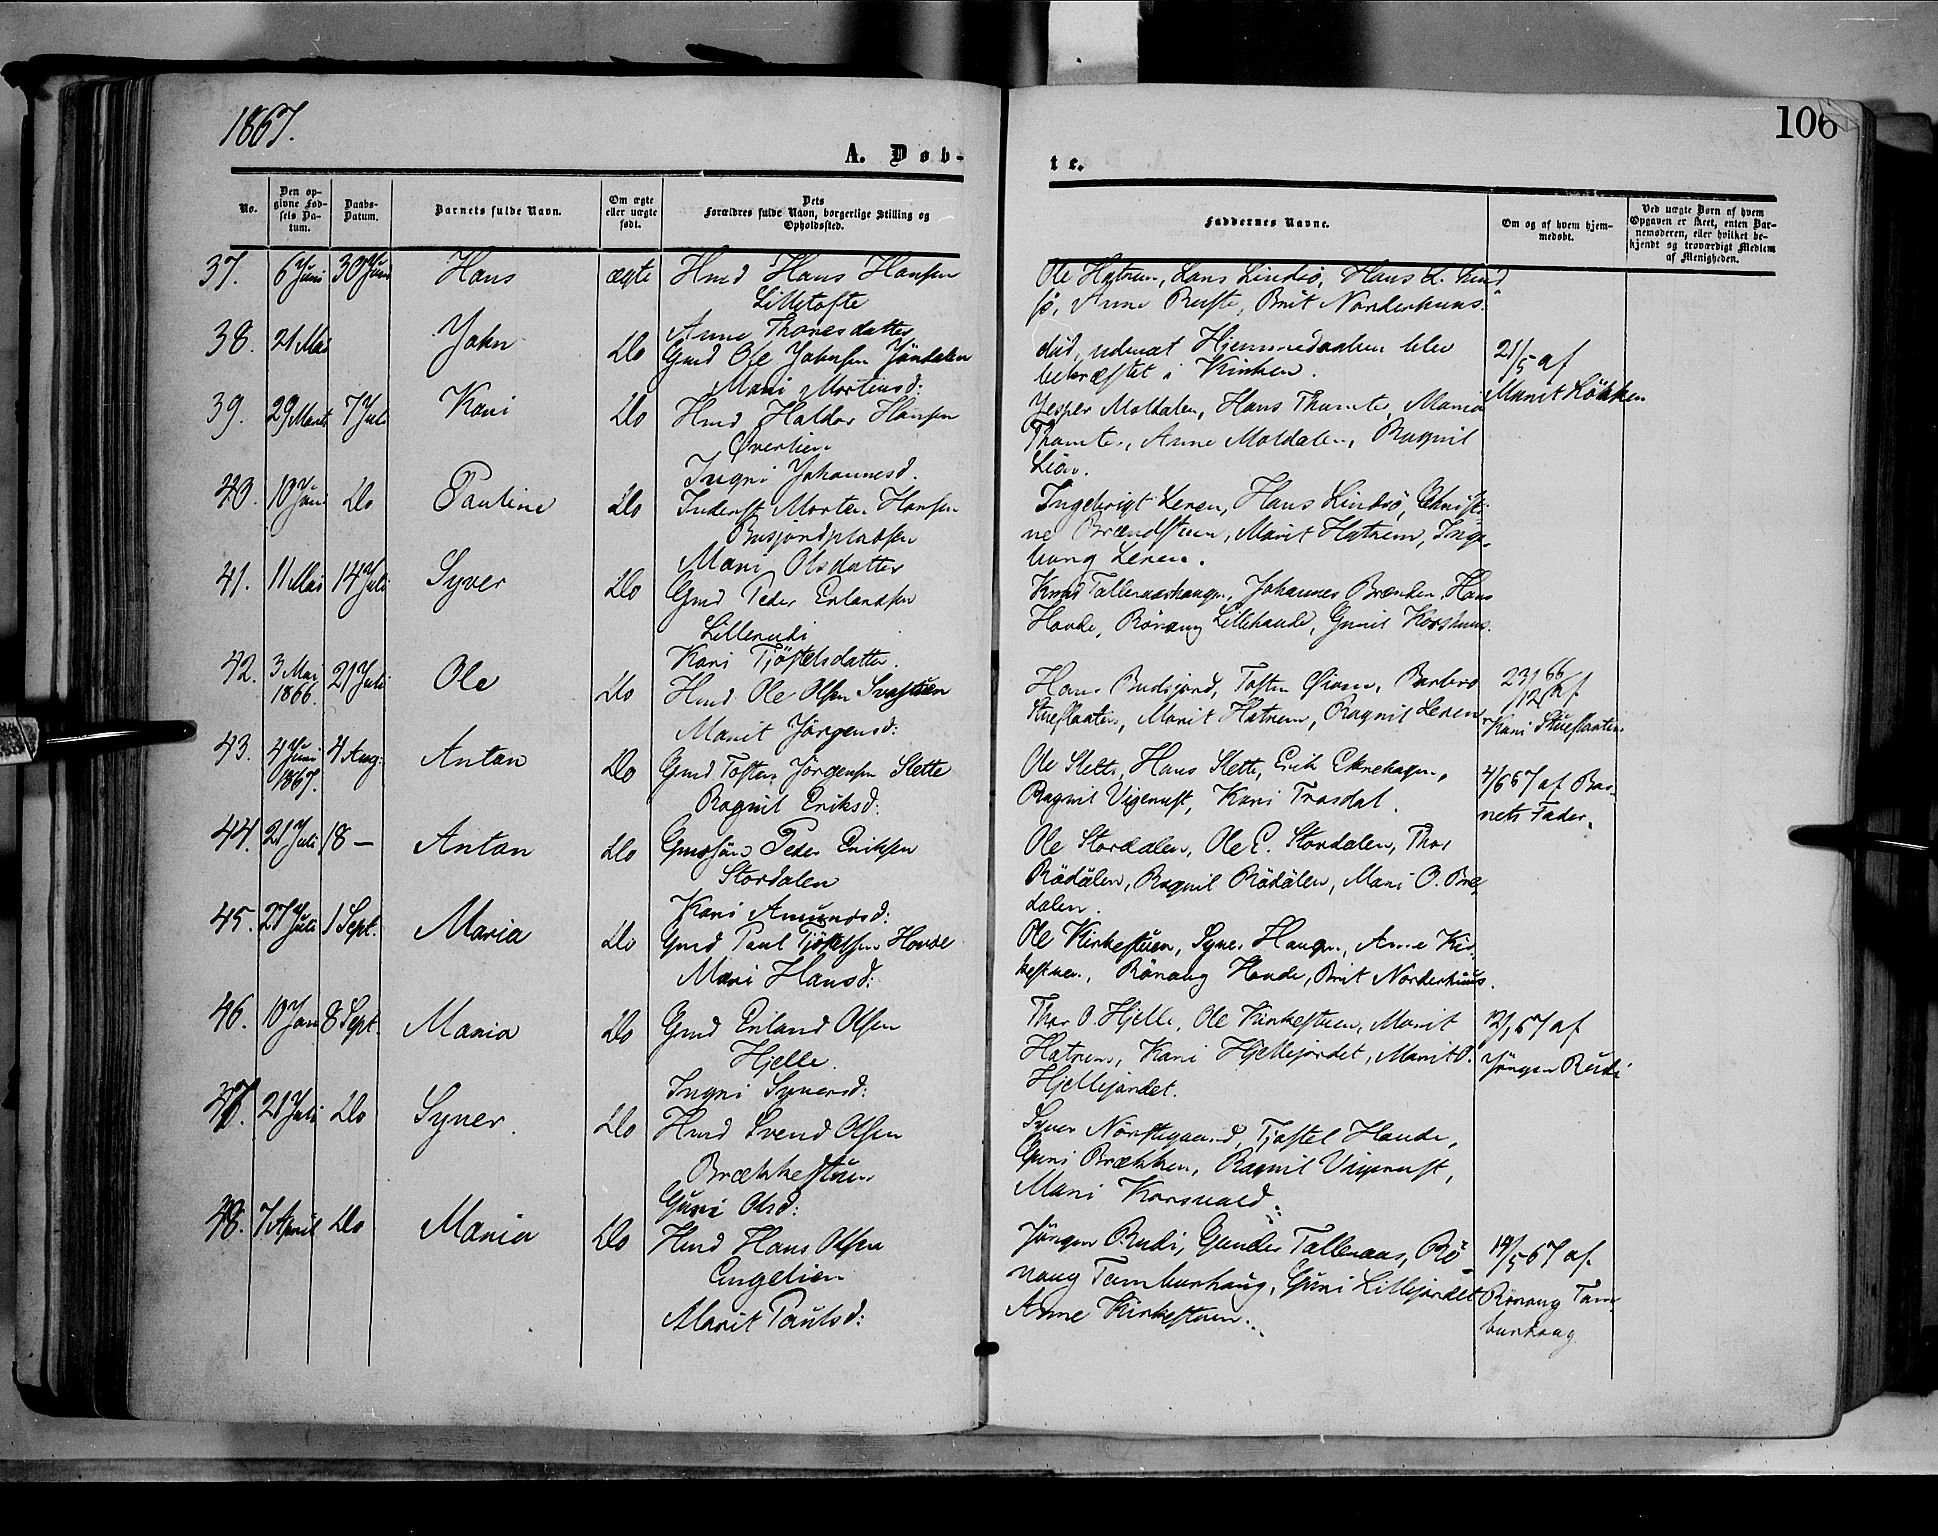 1867.
106
A. Døb-
te.
No.
Den op-
givne Fød-
sels Da-
tum.
Daabs-
Datum.
Barnets fulde Navn.
Om ægte
eller uægte
født.
Dets
Forældres fulde Navn, borgerlige Stilling og
Opholdssted.
Faddernes Navne.
Om og af hvem hjem-
medøbt.
Ved uægte Børn af hvem
Opgaven er skeet, enten Bar-
nemoderen, eller hvilket be-
kjendt og troværdigt Medlem
af Menigheden.
37. 6 Juni 30 Juni Hans ægte Hmd Hans Hansen
Lilletofte
Anne Thoresdatter
Ole Hatrem, Hans Lindsö, Hans L. Lind
sö, Anne Ruste, Brit Norderhuus.
38. 21 Mai John Do Gmd Ole Johnsen Jöndalen
Mari Mortensd:
död, udenat Hjemmedaaben blev
bekræftet i Kirken.
21/5 af
Marit Lökken
39. 29 Marts 7 Juli Kari Do Hmd Haldor Hansen
Øverlien
Ingri Johannesd.
Jesper Moldalen, Hans Thomte, Maria
Thomte, Anne Moldalen, Ragnil
Lien.
40. 10 Do Pauline Do Inderst Morten Hansen
Busjordpladsen
Mari Olsdatter
Ingebrigt Leren, Hans Lindsö, Christi-
ne Brændstuen, Marit Hatrem, Inge-
borg Leren.
41. 11 Mai 14 Juli Syver Do Gmd Peder Erlandsen
Lillerudi
Kari Tjöstelsdatter.
Knud Talleraashaugen, Johannes Brænden, Hans
Hovde, Rönaug Lillehovde, Guril Korshuus.
42. 3 Mai
1866. 21 Juli Ole Do Hmd Ole Olsen Svastuen
Marit Jörgensd:
Hans Budsjord, Tosten Øien, Barbro
Stueflaaten, Marit Hatrem, Ragnil Leren
23/12 66 af
Kari Stueflaaten
43. 4 Juni
1867. 4 Aug: Anton Do Gmd Tosten Jörgensen Slette
Ragnil Eriksd:
Ole Slette, Hans Slette, Erik Ekrehagen,
Ragnil Vigerust, Kari Trosdal.
4/6 67 af Bar-
nets Fader.
44. 21 Juli 18 — Anton Do Gmdsön Peder Eriksen
Stordalen
Kari Amundsd:
Ole Stordalen, Ole E. Stordalen, Thor
Rödölen, Ragnil Rödölen, Mari O. Bre-
dalen.
45. 27 Juli 1 Sept. Maria Do Gmd Paul Tjöstelsen Hovde
Mari Hansd:
Ole Kirkestuen, Syver Haugen, Anne Kir-
kestuen, Rönaug Hovde, Brit Norderhuus.
46. 10 Jan 8 Sept. Maria Do Gmd Erland Olsen
Hjelle.
Ingri Syversd:
Thor O. Hjelle, Ole Kirkestuen, Marit
Hatrem, Kari Hjellejordet, Marit O.
Hjellejordet.
12/1 67 af
Jörgen Rudi
47. 21 Juli Do Syver. Do Hmd Svend Olsen
Brækkestuen
Guri Olsd:
Syver Norstegaard, Tjostel Hovde,
Guri Brækken, Ragnil Vigerust,
Mari Korsvold.
48. 7 April Do Maria Do Hmd Hans Olsen
Engelien
Marit Paulsd:
Jörgen Rudi, Gunder Talleraas, Rö-
naug Tamburhaug, Guri Lillejordet
Anne Kirkestuen.
19/5 67 af.
Rönaug Tam-
burhaug